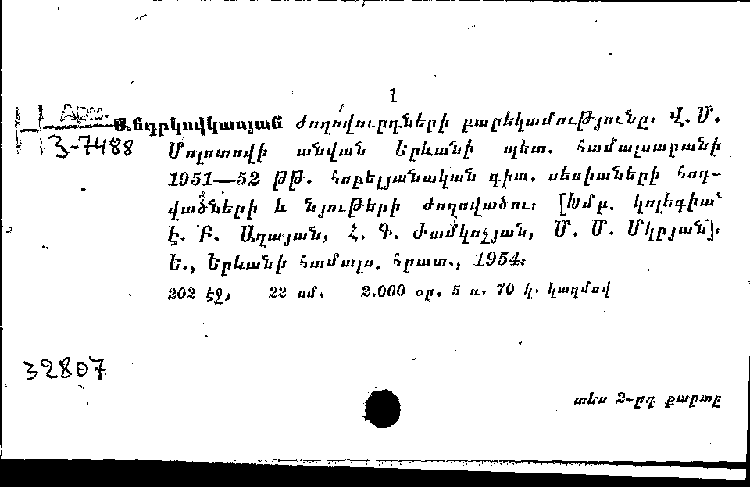 1
Арм.
3-7488
Անդրկովկասյան ժողովուրդների բարեկամությունը։ Վ. Մ.
Մոլոտովի անվան Երևանի պետ. համալսարանի
1951—52 թթ. հոբելյանական գիտ. սեսիաների հոդ-
վածների և նյութերի ժողովածու։ [Խմբ. կոլեգիա՝
Է. Բ. Աղայան, Հ. Գ. Ժամկոչյան, Մ. Մ. Մկրյան]։
Ե., Երևանի համալս. հրատ., 1954։
202 էջ, 22 սմ. 2.000 օր. 5 ռ. 70 կ. կազմով
32807
տես 2-րդ քարտը